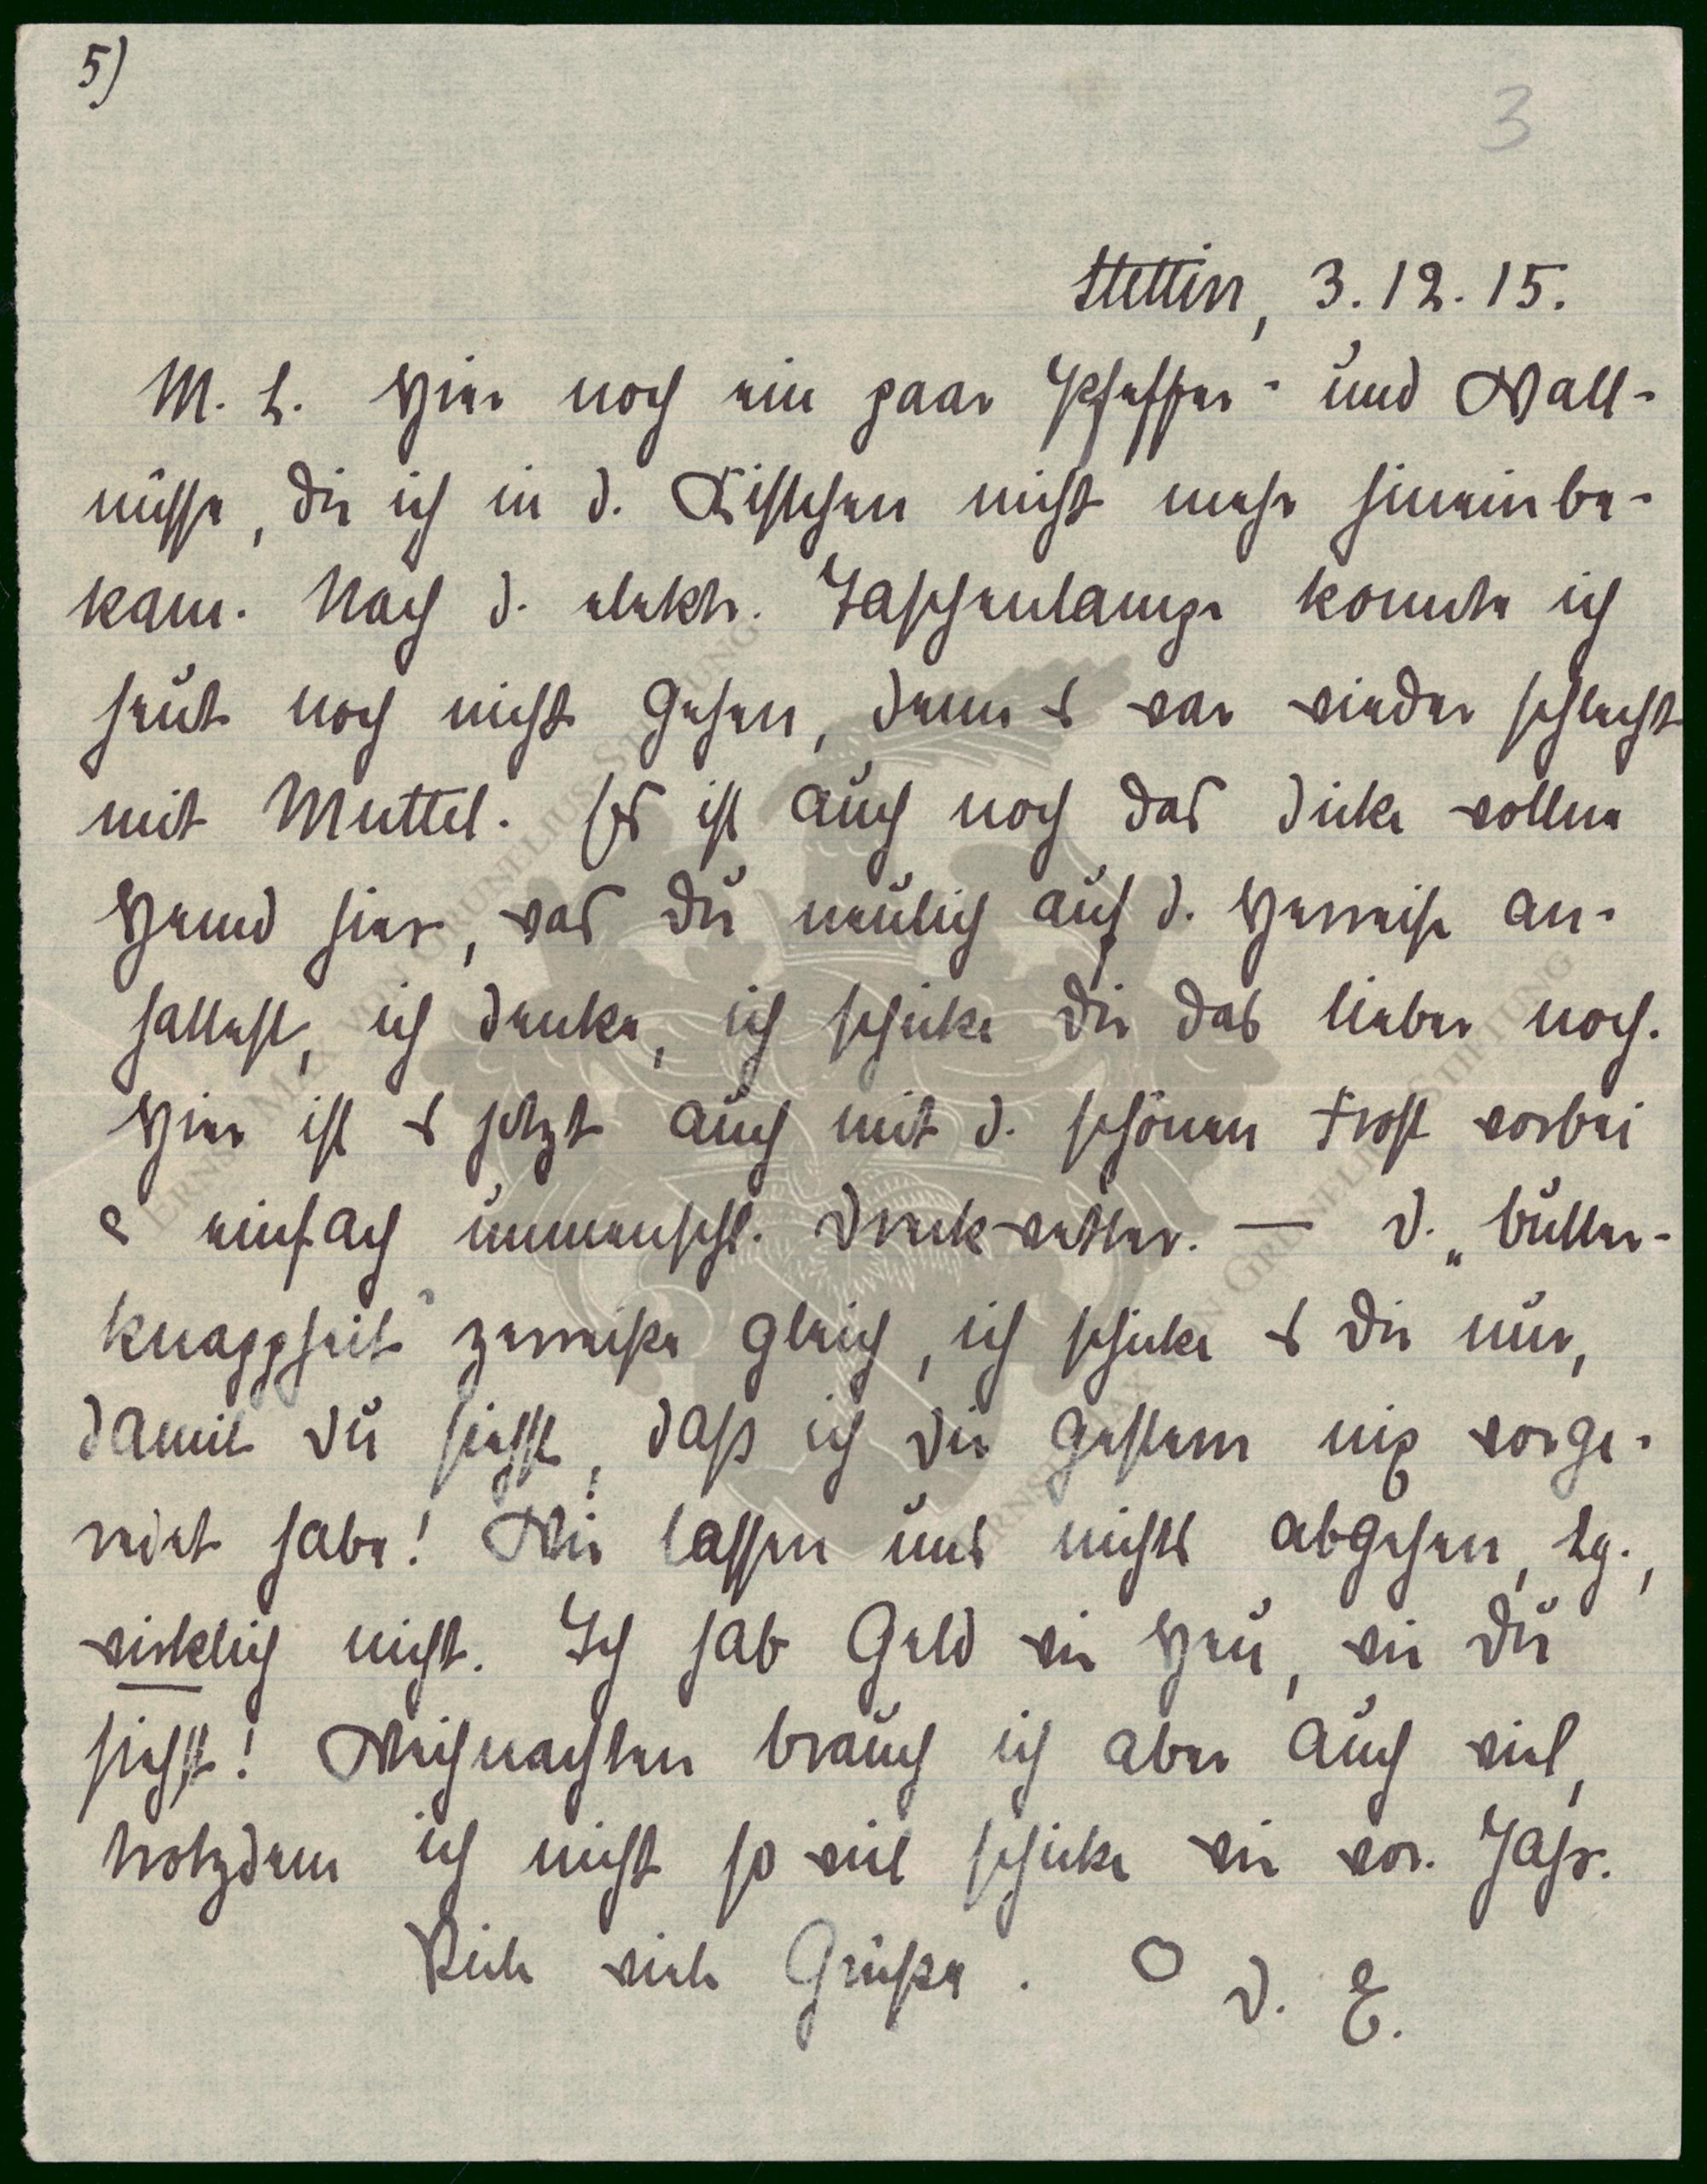 5)
3
Stettin, 3.12.15.
M. L. Hier noch ein paar Pfeffer- und Wall-
nüsse, die ich in d. Kistchen nicht mehr hineinbe-
kam. Nach d. elektr. Taschenlampe konnte ich
heut noch nicht gehen, denn es war wieder schlecht
mit Muttel. Es ist auch noch das dicke wollne
Hemd hier, was Du neulich auf d. Herreise an-
hattest, ich denke, ich schicke Dir das lieber noch.
Hier ist es jetzt auch mit d. schönen Frost vorbei
& einfach unmenschl. Dreckwetter. — D. „Butter-
knappheit" zerreiße gleich, ich schicke es Dir nur,
damit Du siehst, daß ich Dir gestern nix vorge-
redet habe! Wir lassen uns nichts abgehen, Lg.,
wirklich nicht. Ich hab Geld wie Heu, wie Du
siehst! Weihnachten brauch ich aber auch viel,
trotzdem ich nicht so viel schicke wie vor. Jahr.
Viele viele Grüße. O D. E.
ERNST MAX VON GRUNELIUS-STIFTUNG
ERNST MAX VON GRUNELIUS-STIFTUNG